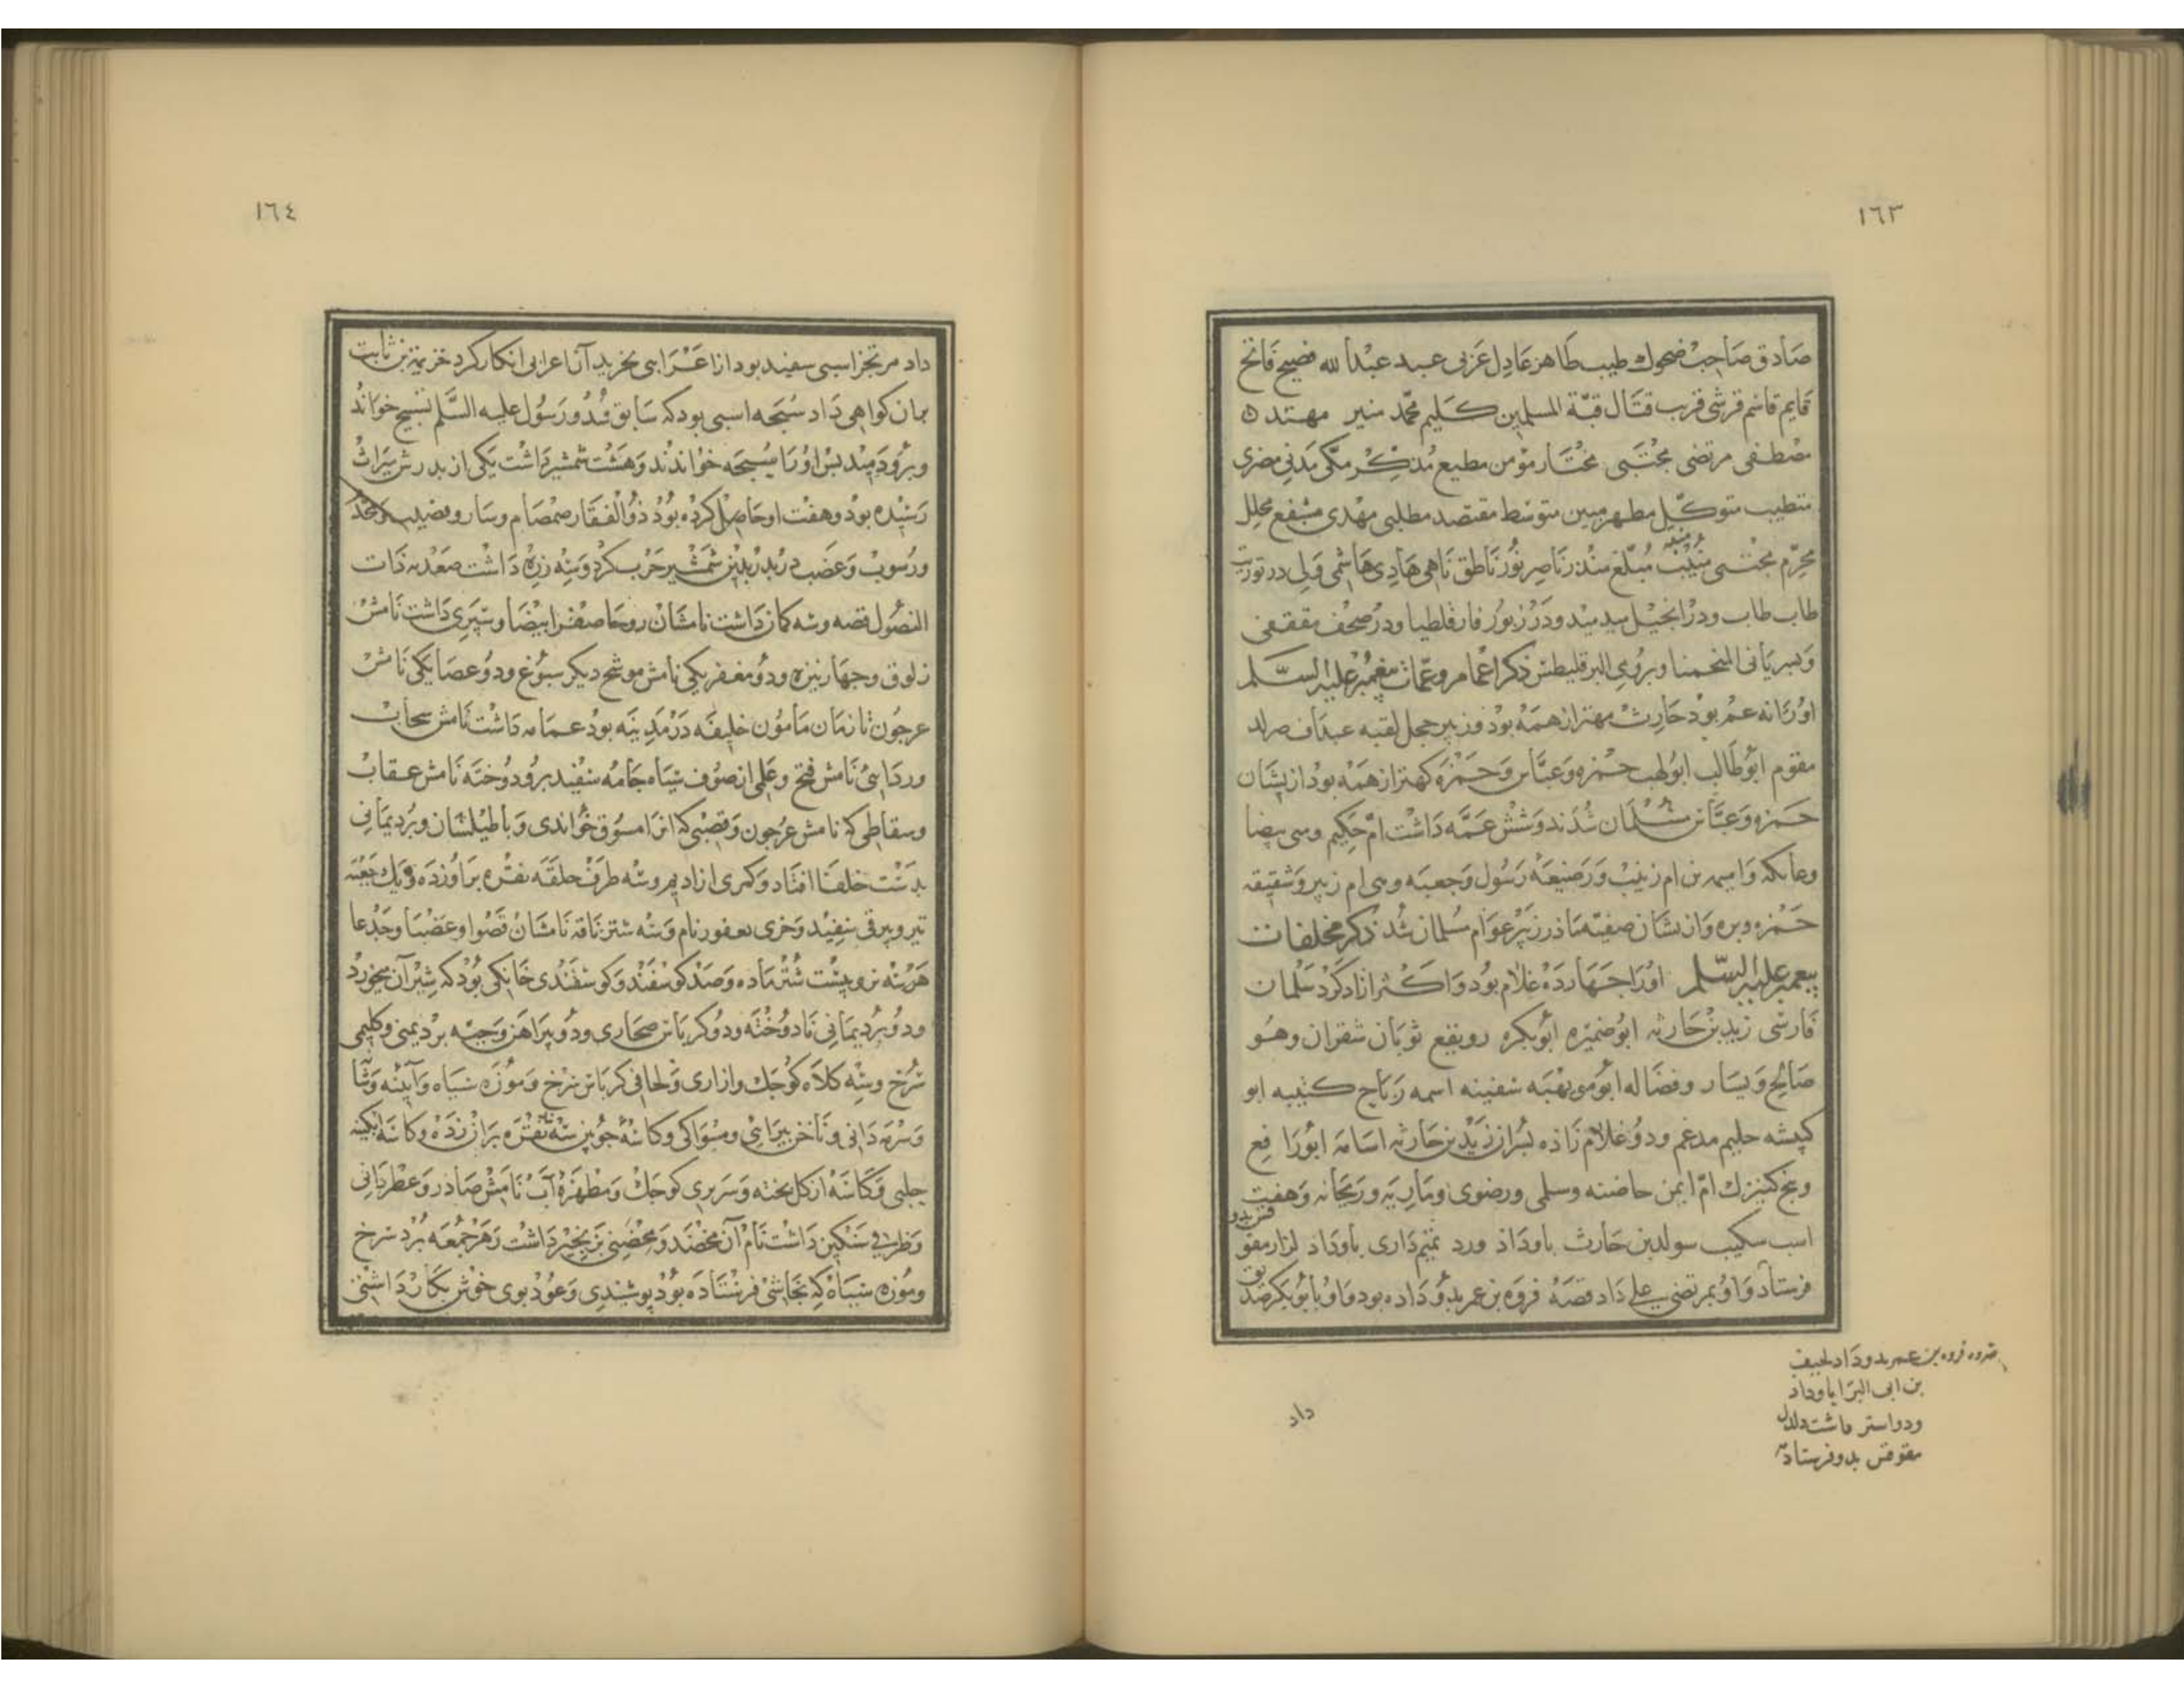 ١٦٣
صادق صاحب ضحوك طیب طاهر عادل عربی عبد عبدالله فصیح فاتح
قایم قاسم قرشی قرب قتال قبّة المسلمین کلیم محمّد منیر مهتد
مصطفی مرتضی مجتبی مختار مؤمن مطیع مذکر مکّی مدنی مضری
متطیب متوکّل مطهر مبین متوسّط مقتصد مطلبی مهدی مشفع محلل
محرّم مجتبی منیب مبلّغ منذر ناصر نور ناطق ناهی هادی هاشمی ولی در توریت
طاب طاب ودر انجیل مید مید ودر زبور فارقلطیا ودر صحف مقفی
وبسریانی المنحمنا وبرومی البرقلیطس ذکر اعمام وعمّات پیغمبر علیه السّلم
اورا نه عم بود حارث مهتر از همه بود وزبیر حجل لقبه عبدمناف ضرار
مقوم ابو طالب ابو لهب حمزه وعبّاس وحمزه کهتر از همه بود از یشان
حمزه وعبّاس مسلمان شدند وشش عمّه داشت امّ حکیم وهی بیضا
وعاتکه وامیمه ام زینب ورضیعه رسول وهی ام زبیر وشقیقه
حمزه وبره واز یشان صفیّه مادر زبیر عوام مسلمان شد ذکر مخلفات
پیغمبر علیه السّلم اورا چهارده غلام بود واکثر ازاد کرد سلمان
فارسی زید بن حارثه ابو ضمیره ابو بکره رویفع ثوبان شقران وهو
صالح ویسار وفضاله ابو موی‌هبه سفینه اسمه رباح کثیبه ابو
کبشه حلیم مدعم ودو غلام زاده پسر از زید بن حارثه اسامه ابو رافع
وپنج کنیزك امّ ایمن حاضنته وسلمی ورضوی وماریه وریحانه وهفت
اسب سکیب سولد بن حارث باو داد ورد تمیم داری باو داد لزار مقوقس بدو
فرستاد واو بمرتضی علی داد قصه فروه بن عمر بدو داده بود واو بابو بکر صدیق
فروه بن عمر بدو داد لحیف
بن ابی البرّا باو داد
ودو استر داشت دلدل
مقوقس بدو فرستاده
داد
١٦٤
داد مرتجز اسبی سفید بود از اعرابی بخرید آن اعرابی انکار کرد خزیمة بن ثابت
بران کواهی داد سبحه اسبی بود که سابق شد ورسول علیه السّلم تسبیح خواند
وبرو دمید پس اورا سبحه خواندند وهشت شمشیر داشت یکی از پدرش میراث
رسیده بود وهفت او حاصل کرده بود ذو الفقار صمصام وسار وقضیب
ورسوب وعضب در بدر بدین شمشیر حرب کرد وسه زره داشت صعدیه ذات
الفضول فضه وسه کمان داشت نامشان روحا صفرا بیضا وسپری داشت نامش
زلوق وچهار نیزه ودو مغفر یکی نامش موشح دیکر سبوغ ودو عصا یکی نامش
عرجون تا زمان مامون خلیفه در مدینه بود عمامه داشت نامش سحاب
وردایی نامش فتح وعلمی از صوف سیاه جامه سفید برو دوخته نامش عقاب
وسقاطی که نامش عرجون وقضیبی که انرا ممسوق خواندی وبا طیلسان وبرد یمانی
بدست خلفا افتاد وکمری از ادیم وسه طرف حلقه نقره براو زده ویك جعبه
تیر وبیرقی سفید وخری یعفور نام وسه شتر ناقه نامشان قصوا وعضبا وجدعا
هر سه نر وبیست شتر ماده وصد کوسفند وکوسفندی خانکی بود که شیر آن میخورد
ودو برد یمانی نادوخته ودو کرباس صحاری ودو پیراهن وجبّه برد یمنی وکلیمی
سرخ وسه کلاه کوچك وازاری ولحافی کرباس سرخ وموزه سیاه وآینه وشا
وسرمه دانی وناخن پیرایی ومسواکی وکاسه چوبین سه نقره بر ان زده وکاسه ابکینه
حلبی وکاسه از کل پخته وسریری کوچك ومطهره آب نامش صادر وعطر دانی
وظرفی سنکین داشت نام آن مخضد ومخضبی بزنجیر داشت وهر جمعه برد سرخ
وموزه سیاه که نجاشی فرستاده بود پوشیدی وعود بوی خوش بکار داشتی